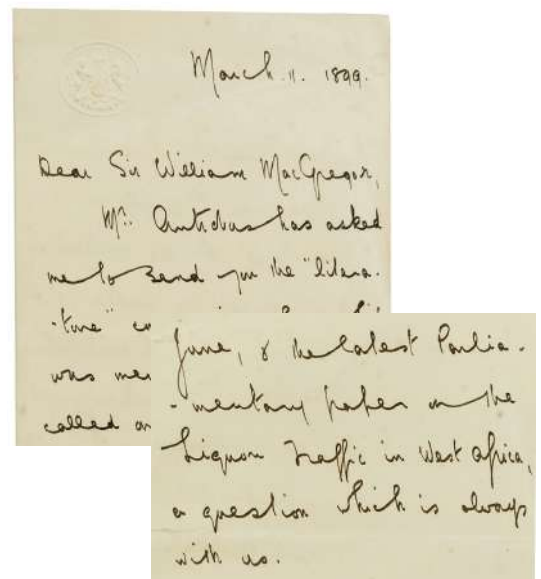 March. 11. 1899.
Dear Sir William MacGregor,
Mr. Antrobus has asked
me to send you the "litera-
-ture"
was
called
June, & the latest Parlia-
-mentary paper on the
Liquor Traffic in West Africa,
a question which is always
with us.